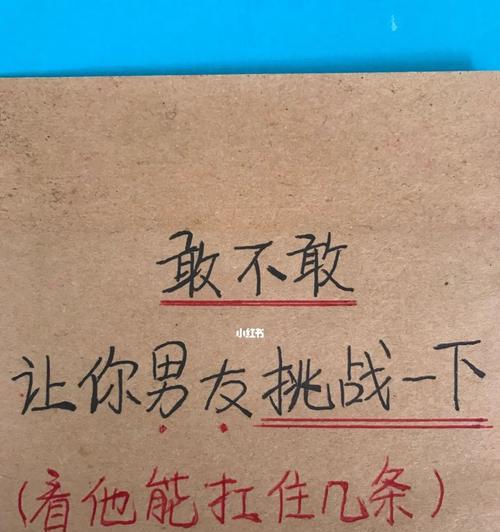 敢不敢
小红书
让你男友挑战一下
(看他能扛住几条)